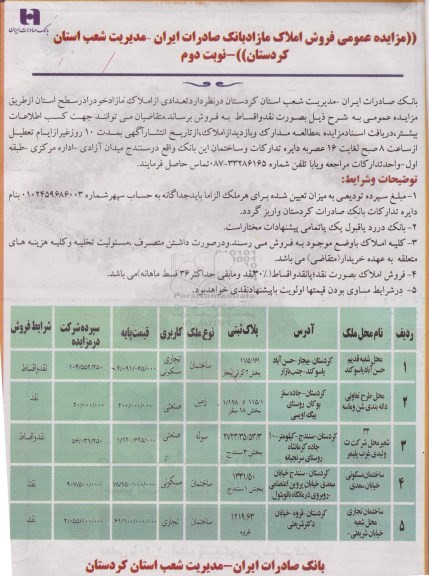 بانک صادرات ایران
((مزایده عمومی فروش املاک مازادبانک صادرات ایران -مدیریت شعب استان
کردستان))-نوبت دوم
بانک صادرات ایران -مدیریت شعب استان کردستان درنظرداردتعدادی ازاملاک مازادخودرادرسطح استان ازطریق
مزایده عمومی به شرح ذیل بصورت نقدواقساط به فروش برساند.متقاضیان می توانند جهت کسب اطلاعات
بیشتر،دریافت اسنادمزایده ،مطالعه مدارک وبازدیدازاملاک،ازتاریخ انتشارآگهی بمدت ۱۰ روزغیرازایام تعطیل
ازساعت ۸ صبح لغایت ۱۶ عصربه دایره تدارکات وساختمان این بانک واقع درسنندج میدان آزادی -اداره مرکزی -طبقه
اول-واحدتدارکات مراجعه ویابا تلفن شماره ۳۳۲۸۶۱۶۵-۰۸۷تماس حاصل فرمایند.
توضیحات وشرایط:
۱-مبلغ سپرده تودیعی به میزان تعیین شده برای هرملک الزاما بایدجداگانه به حساب سپهرشماره ۰۱۰۲۴۵۹۶۸۶۰۰۳ بنام
دایره تدارکات بانک صادرات کردستان واریز گردد.
۲-بانک دررد یاقبول یک یاتمامی پیشنهادات مختاراست.
۳- کلیه املاک باوضع موجود به فروش می رسند.ودرصورت داشتن متصرف ،مسئولیت تخلیه وکلیه هزینه های
متعلقه به عهده خریدار(متقاضی) می باشد.
۴- فروش املاک بصورت نقد؛یانقدواقساط(۳۰٪نقد ومابقی حداکثر۳۶ قسط ماهانه)می باشد.
۵- درشرایط مساوی بودن قیمتها اولویت باپیشنهادنقدی خواهدبود.
ردیف نام محل ملک آدرس پلاک ثبتی نوع ملک کاربری قیمت پایه سپرده شرکت درمزایده شرایط فروش
۱ محل شعبه قدیم حسن آباد یاسوکند کردستان-بیجار-حسن آباد یاسوکند-جنب بازار ساختمان تجاری مسکونی نقدواقساط
۲ محل طرح تعاونی دانه بندی شن وماسه کردستان-جاده سقز بوکان روستای زمین صنعتی ۴۰۰/۰۰۰/۰۰۰ ۲۰/۰۰۰/۰۰۰ نقد
۳ کردستان-سنندج-کیلومتر۱۰ جاده کرمانشاه روستای سرنجیانه بخش ۳ سنندج سوله صنعتی نقدواقساط
۴ ساختمان مسکونی خیابان سعدی کردستان-سنندج خیابان سعدی خیابان پروین اعتصامی ۱۳۳۱/۵۰ بخش ۱ سنندج ساختمان مسکونی ۱۸/۱۵۰/۰۰۰/۰۰۰ ۹۰۷/۵۰۰/۰۰۰ نقد
۵ ساختمان تجاری محل شعبه خیابان شریعتی- کردستان-قروه-خیابان دکترشریعتی ۱۲۱۹/۶۳ قروه ساختمان تجاری ۴۱/۱۰۰/۰۰۰/۰۰۰ ۲/۰۵۵/۰۰۰/۰۰۰ نقد
بانک صادرات ایران-مدیریت شعب استان کردستان